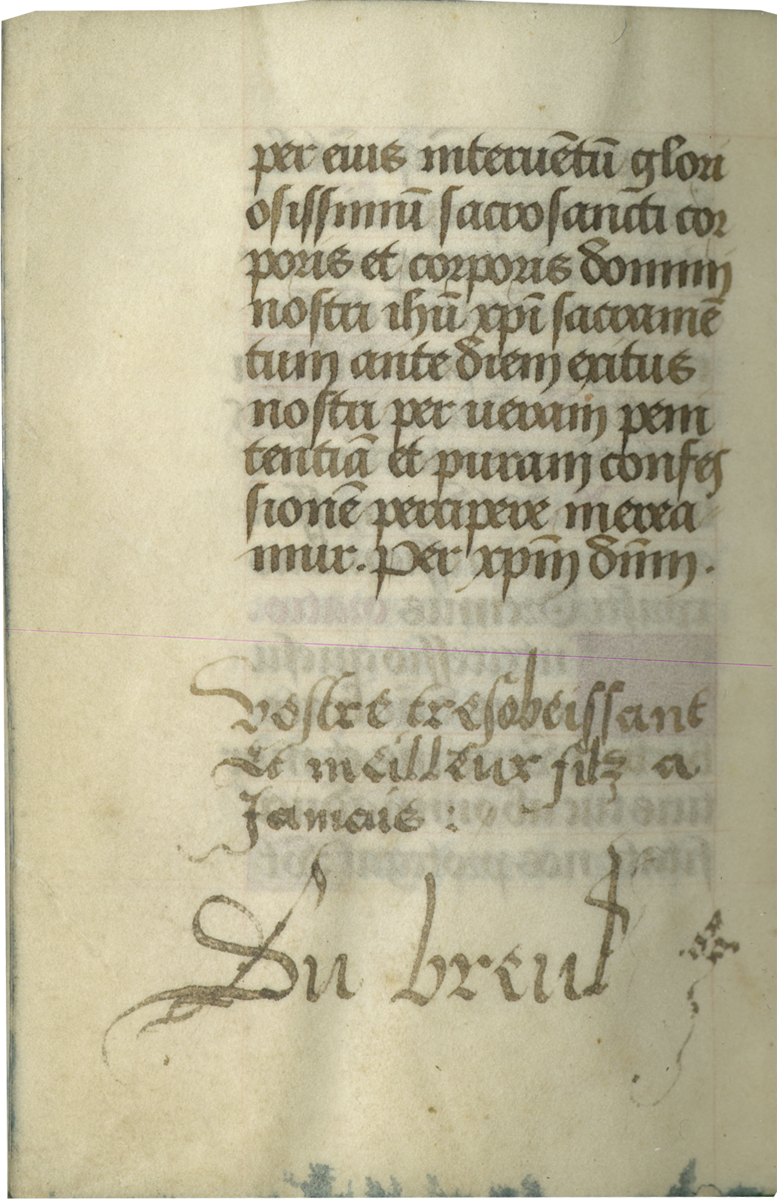 per eius interuētū glori
osissimū sacrosancti cor
poris et corporis domini
nostri ihū xpi sacramē
tum ante diem exitus
nostri per ueram peni
tentiā et puram confes
sionē percipere merea
mur. Per xpm̄ dn̄m.
Vostre tresobeissant
Et meilleux filz a
Jamais :
Du breul